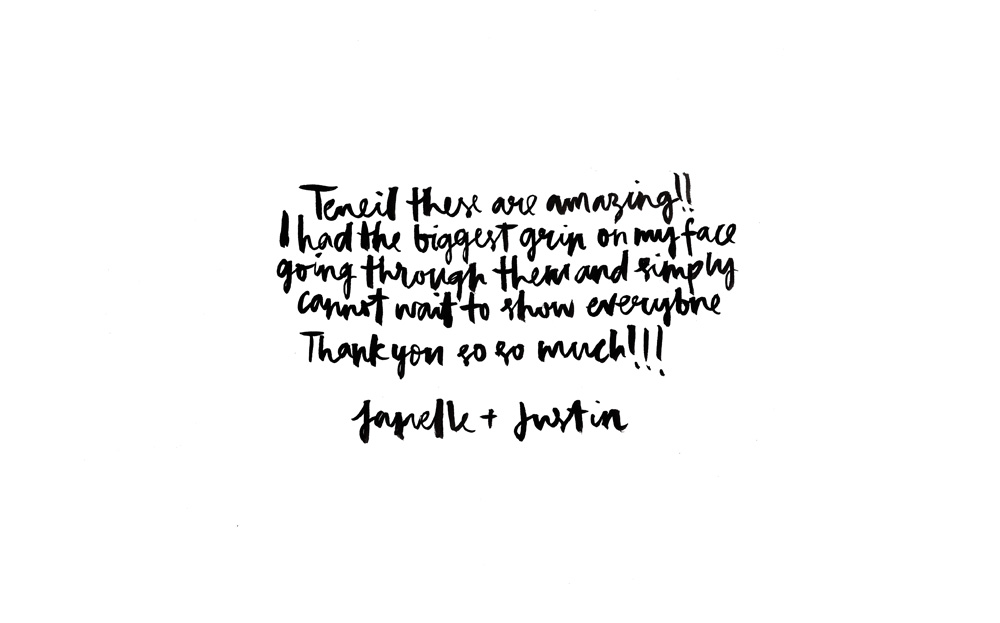 Teneil these are amazing!!
I had the biggest grin on my face
going through them and simply
cannot wait to show everyone
Thank you so so much!!!
Janelle + Justin